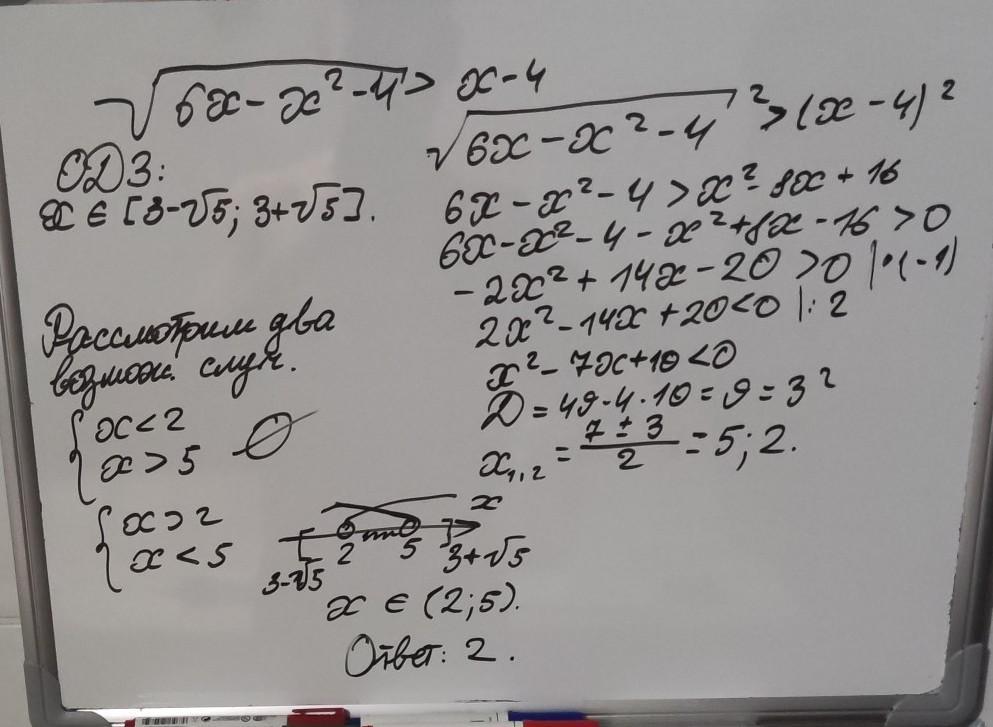 √6x - x² - 4 > x - 4
ОДЗ:
x ∈ [3-√5; 3+√5].
√6x - x² - 4² > (x - 4)²
6x - x² - 4 > x² - 8x + 16
6x - x² - 4 - x² + 8x - 16 > 0
-2x² + 14x - 20 > 0 |·(-1)
2x² - 14x + 20 < 0 |: 2
x² - 7x + 10 < 0
D = 49 - 4 · 10 = 9 = 3²
x₁,₂ = (7 ± 3)/2 = 5; 2.
Рассмотрим два
возмож. случ.
{ x < 2
{ x > 5 ∅
{ x > 2
{ x < 5
x
3-√5 2 5 3+√5
x ∈ (2;5).
Ответ: 2.